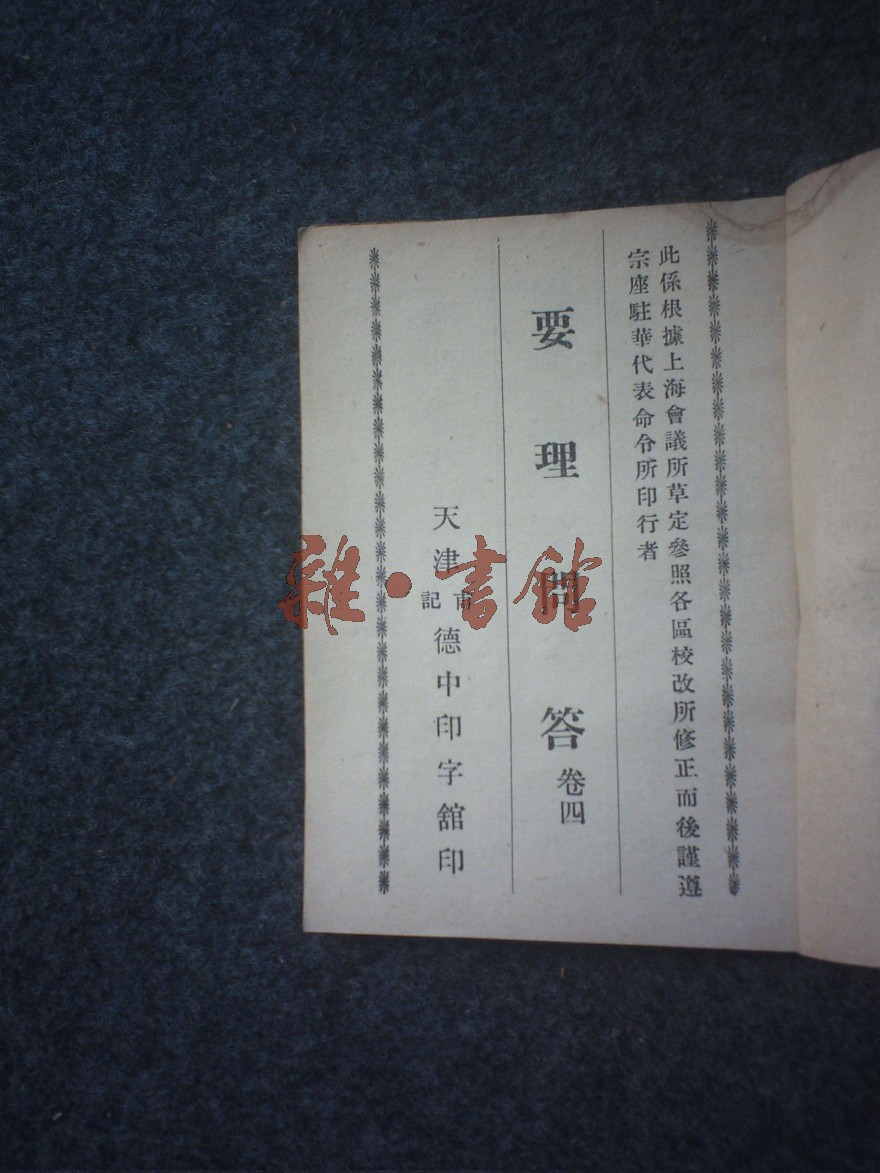 此係根據上海會議所草定參照各區校改所修正而後謹遵
宗座駐華代表命令所印行者
要理問答 卷四
天津甫記德中印字舘印
雜·書館